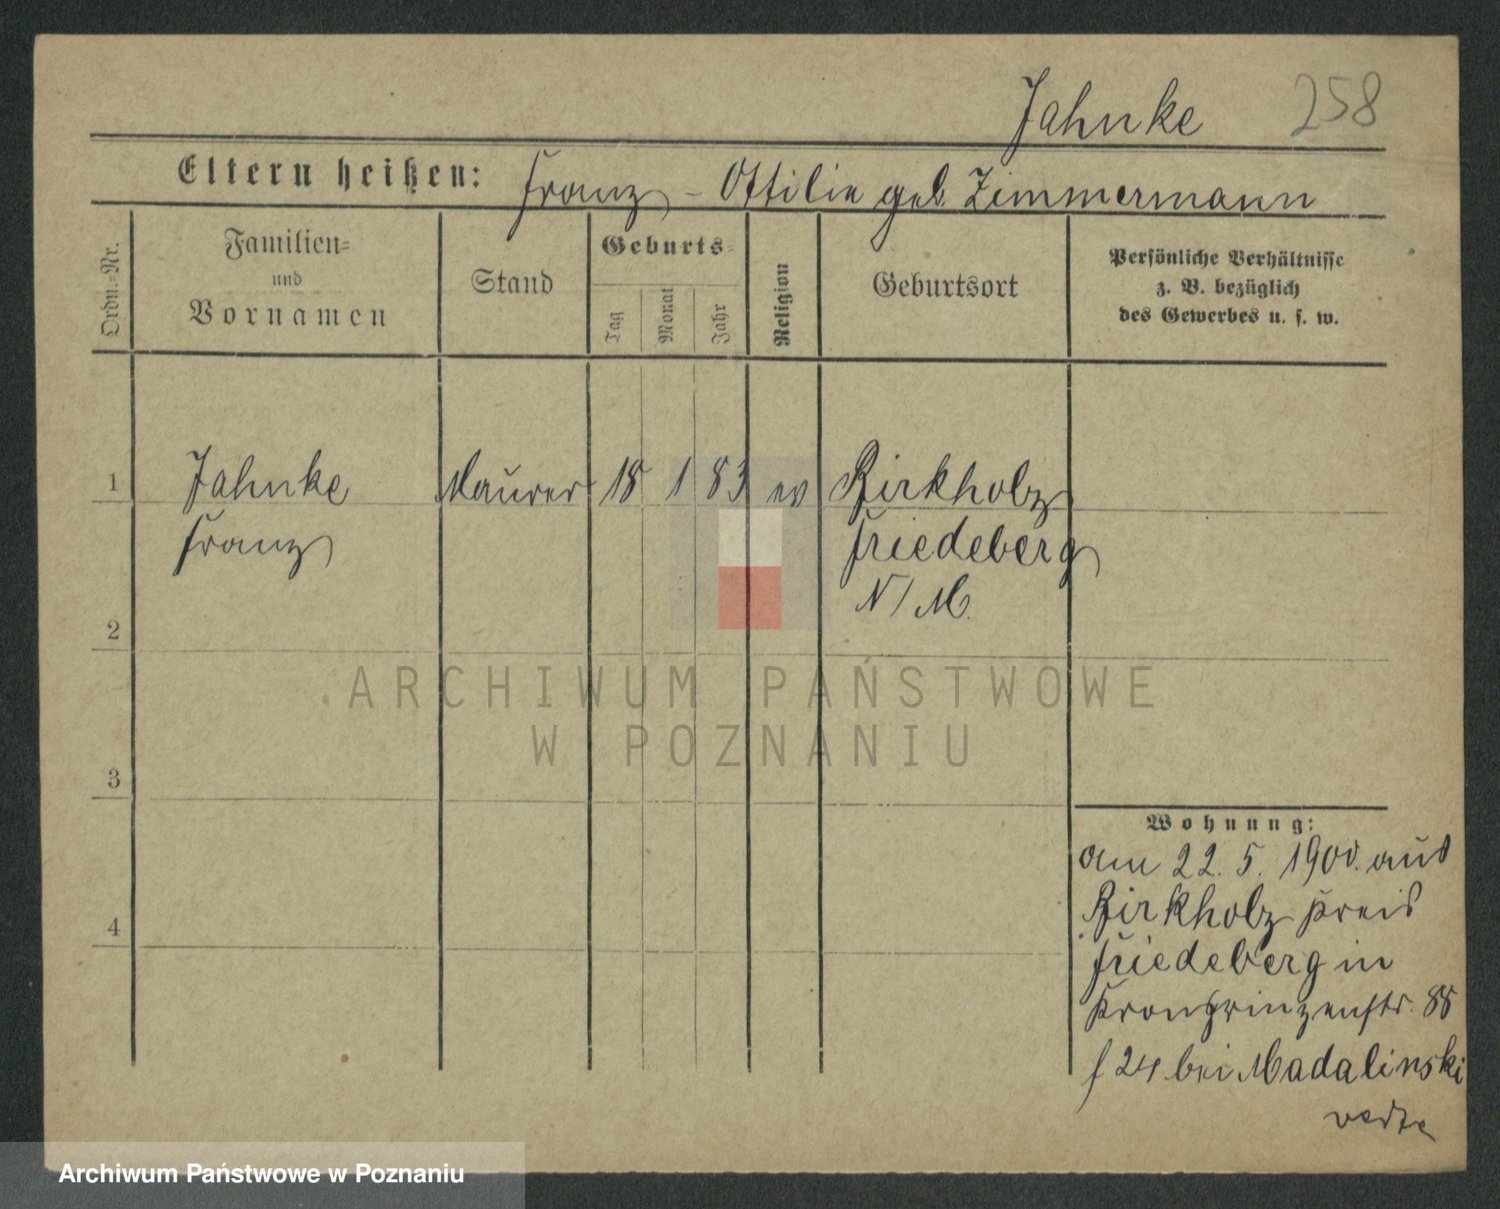 Jahnke 258
Eltern heißen: Franz - Ottilie geb. Zimmermann
Ordn.-Nr.
Familien-
und
Vornamen
Stand
Geburts-
Tag
Monat
Jahr
Religion
Geburtsort
Persönliche Verhältnisse
z. B. bezüglich
des Gewerbes u. s. w.
1 Jahnke Maurer 18 1 83 ev Birkholz
Franz Friedeberg
N/M.
2
ARCHIWUM PAŃSTWOWE
W POZNANIU
3
4
Wohnung:
am 22. 5. 1900. aus
Birkholz Kreis
Friedeberg in
Kronprinzenstr. 88
f 24 bei Madalinski
verte
Archiwum Państwowe w Poznaniu